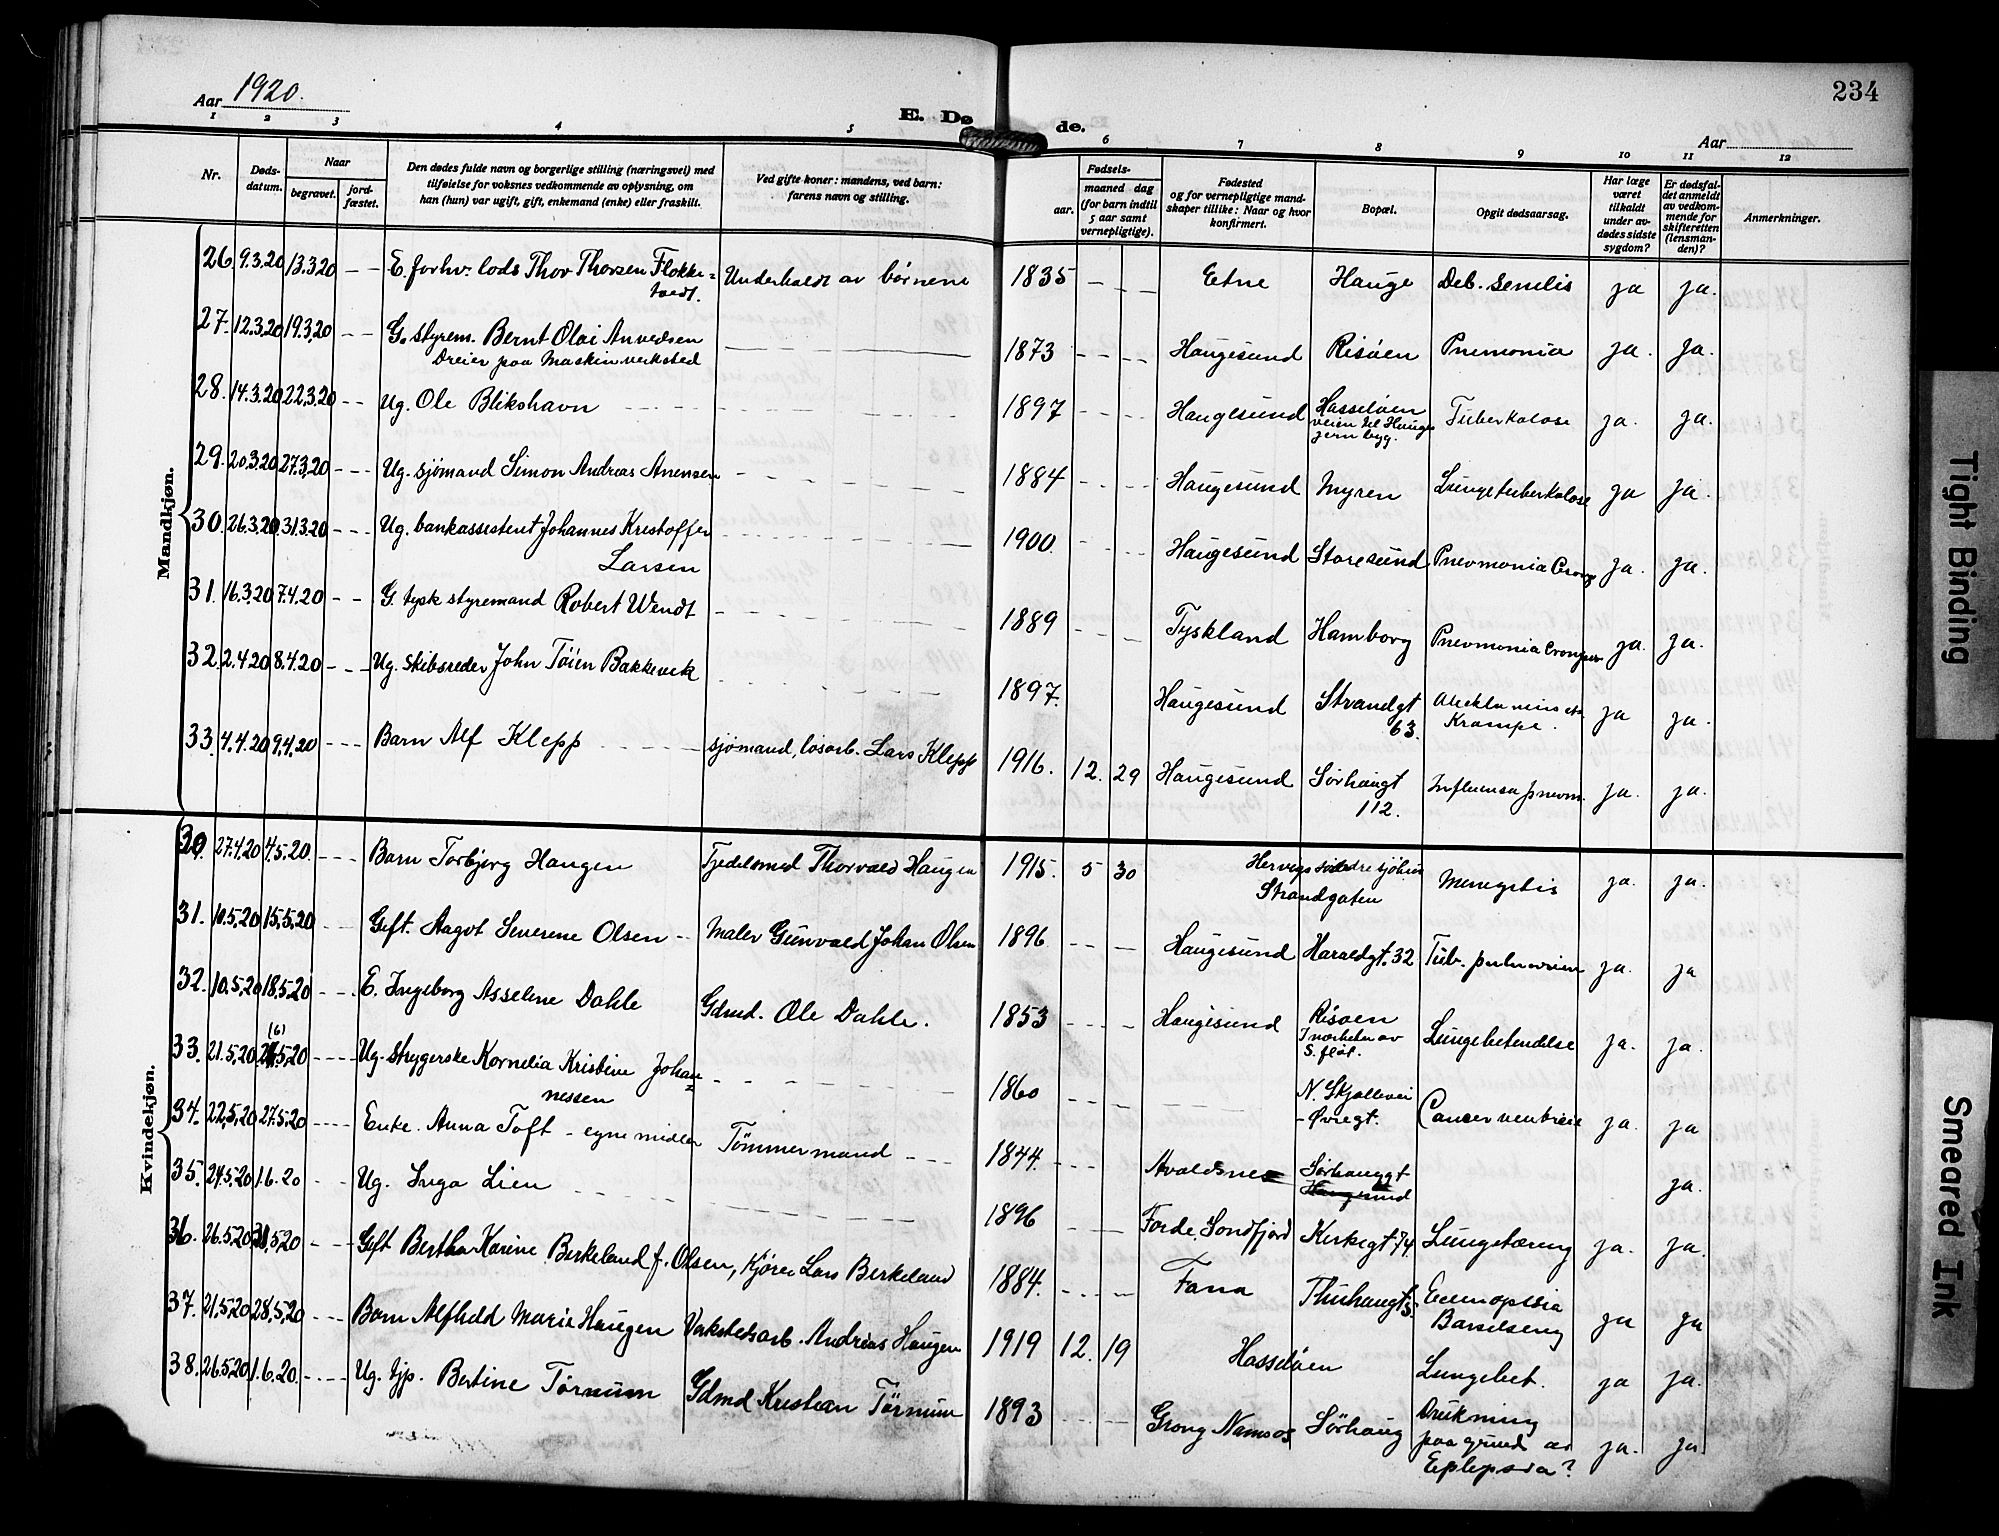 234
Aar 1920.
E. Døde.
Aar
1 2 3 4 5 6 7 8 9 10 11 12
Nr.
Døds-
datum.
Naar
begravet.
jord-
fæstet.
Den dødes fulde navn og borgerlige stilling (næringsvei) med
tilføielse for voksnes vedkommende av oplysning, om
han (hun) var ugift, gift, enkemand (enke) eller fraskilt.
Ved gifte koner: mandens, ved barn:
farens navn og stilling.
Fødsels-
aar.
maaned dag
(for barn indtil
5 aar samt
vernepligtige).
Fødested
og for vernepligtige mand-
skaper tillike: Naar og hvor
konfirmert.
Bopæl.
Opgit dødsaarsag.
Har læge
været
tilkaldt
under av-
dødes sidste
sygdom?
Er dødsfal-
det anmeldt
av vedkom-
mende for
skifteretten
(lensman-
den)?
Anmerkninger.
Mandkjøn.
26. 9.3.20 13.3.20 - - E. forhv. lods Thor Thorsen Flokke= Underholdt av børnene 1835 - - - Etne Hauge Deb. senilis ja ja.
tvedt.
27. 12.3.20 19.3.20 - - G. styrem. Bernt Olai Arvedsen 1873 - - - - Haugesund Risøen Pnemonia ja. ja.
Dreier paa Maskinverksted
28. 14.3.20 22.3.20 - - Ug. Ole Blikshavn 1897 - - - - Haugesund Hasseløen Tuberkolose ja. ja.
veien til Hauges
jernbyg.
29. 20.3.20 27.3.20 - - - Ug. sjömand Simon Andreas Arnensen 1884 - - - - Haugesund Myren Lungetuberkolose ja ja.
30. 26.3.20 31.3.20 - - - Ug. bankassistent Johannes Kristoffer 1900. - - - - Haugesund Storesund Pnevmonia Croup ja. ja.
Larsen
31. 16.3.20 7.4.20 - - G. tysk styremand Robert Wendt 1889 - - - Tyskland Hamborg Pnevmonia ja. ja.
32. 2.4.20 8.4.20 - - - Ug. skibsreder John Töien Bakkevik 1897. Haugesund Strandgt ja ja.
63. Krampe.
33. 4.4.20 9.4.20 - - - Barn Alf Klepp sjömand, løsarb. Lars Klepp 1916. 12. 29 Haugesund Sørhaugt Influensa pnevm. ja. ja.
112.
Kvindekjøn.
30. 27.4.20 4.5.20. - - - Barn Torbjørg Haugen Fjedelsmed Thorvald Haugen 1915. 5 30 Hervigs søndre sjøhus Menegitis ja. ja.
Strandgaten
31. 10.5.20 15.5.20 - - - Gift. Aagot Severine Olsen - - Maler Gunvald Johan Olsen 1896 - - - Haugesund Haraldgt. 32 Tub. ja. ja
32. 10.5.20 18.5.20 - - - E. Ingeborg Asseline Dahle Gdmd. Ole Dahle. 1853 - - - - Haugesund Risøen Lungebetendelse ja. ja.
I nærheten av
S. fløt.
33. 21.5.20 (6) 5.20 - - - - Ug. Strygerske Kornelia Kristine Johan= 1860 N. Skjoldevei Cancer ventricie ja. ja
nessen - Øvregt.
34. 22.5.20 27.5.20 - - - - Enke. Anna Toft - egne midler Tømmermand - - - 1844. - - - Avaldsnes Sørhauggt ja.
Haugesund
35. 24.5.20 1.6.20 - - Ug. Inga Lien 1896 - - - Førde, Söndfjord Kirkegt. 74 Lungetæring ja. ja.
36. 26.5.20 31.5.20 - - - Gift Bertha Karine Birkeland f. Olsen, Kjører Lars Birkeland 1884. - - - Fana Thuhaugt 5 Eclamopsia ja ja
Barselseng
37. 21.5.20 28.5.20 - - - Barn Alfhild Marie Haugen Verkstedsarb. Andreas Haugen 1919 12. 19 Hasseløen Lungebet. ja ja.
38. 26.5.20 1.6.20. - - - - Ug. tjp. Bertine Tørnum Gdmd Kristian Tørnum 1893 - - - - Grong Namsos Sørhaug Drukning ja. ja.
paa grund av
Eplepsia?
Tight Binding
Smeared Ink